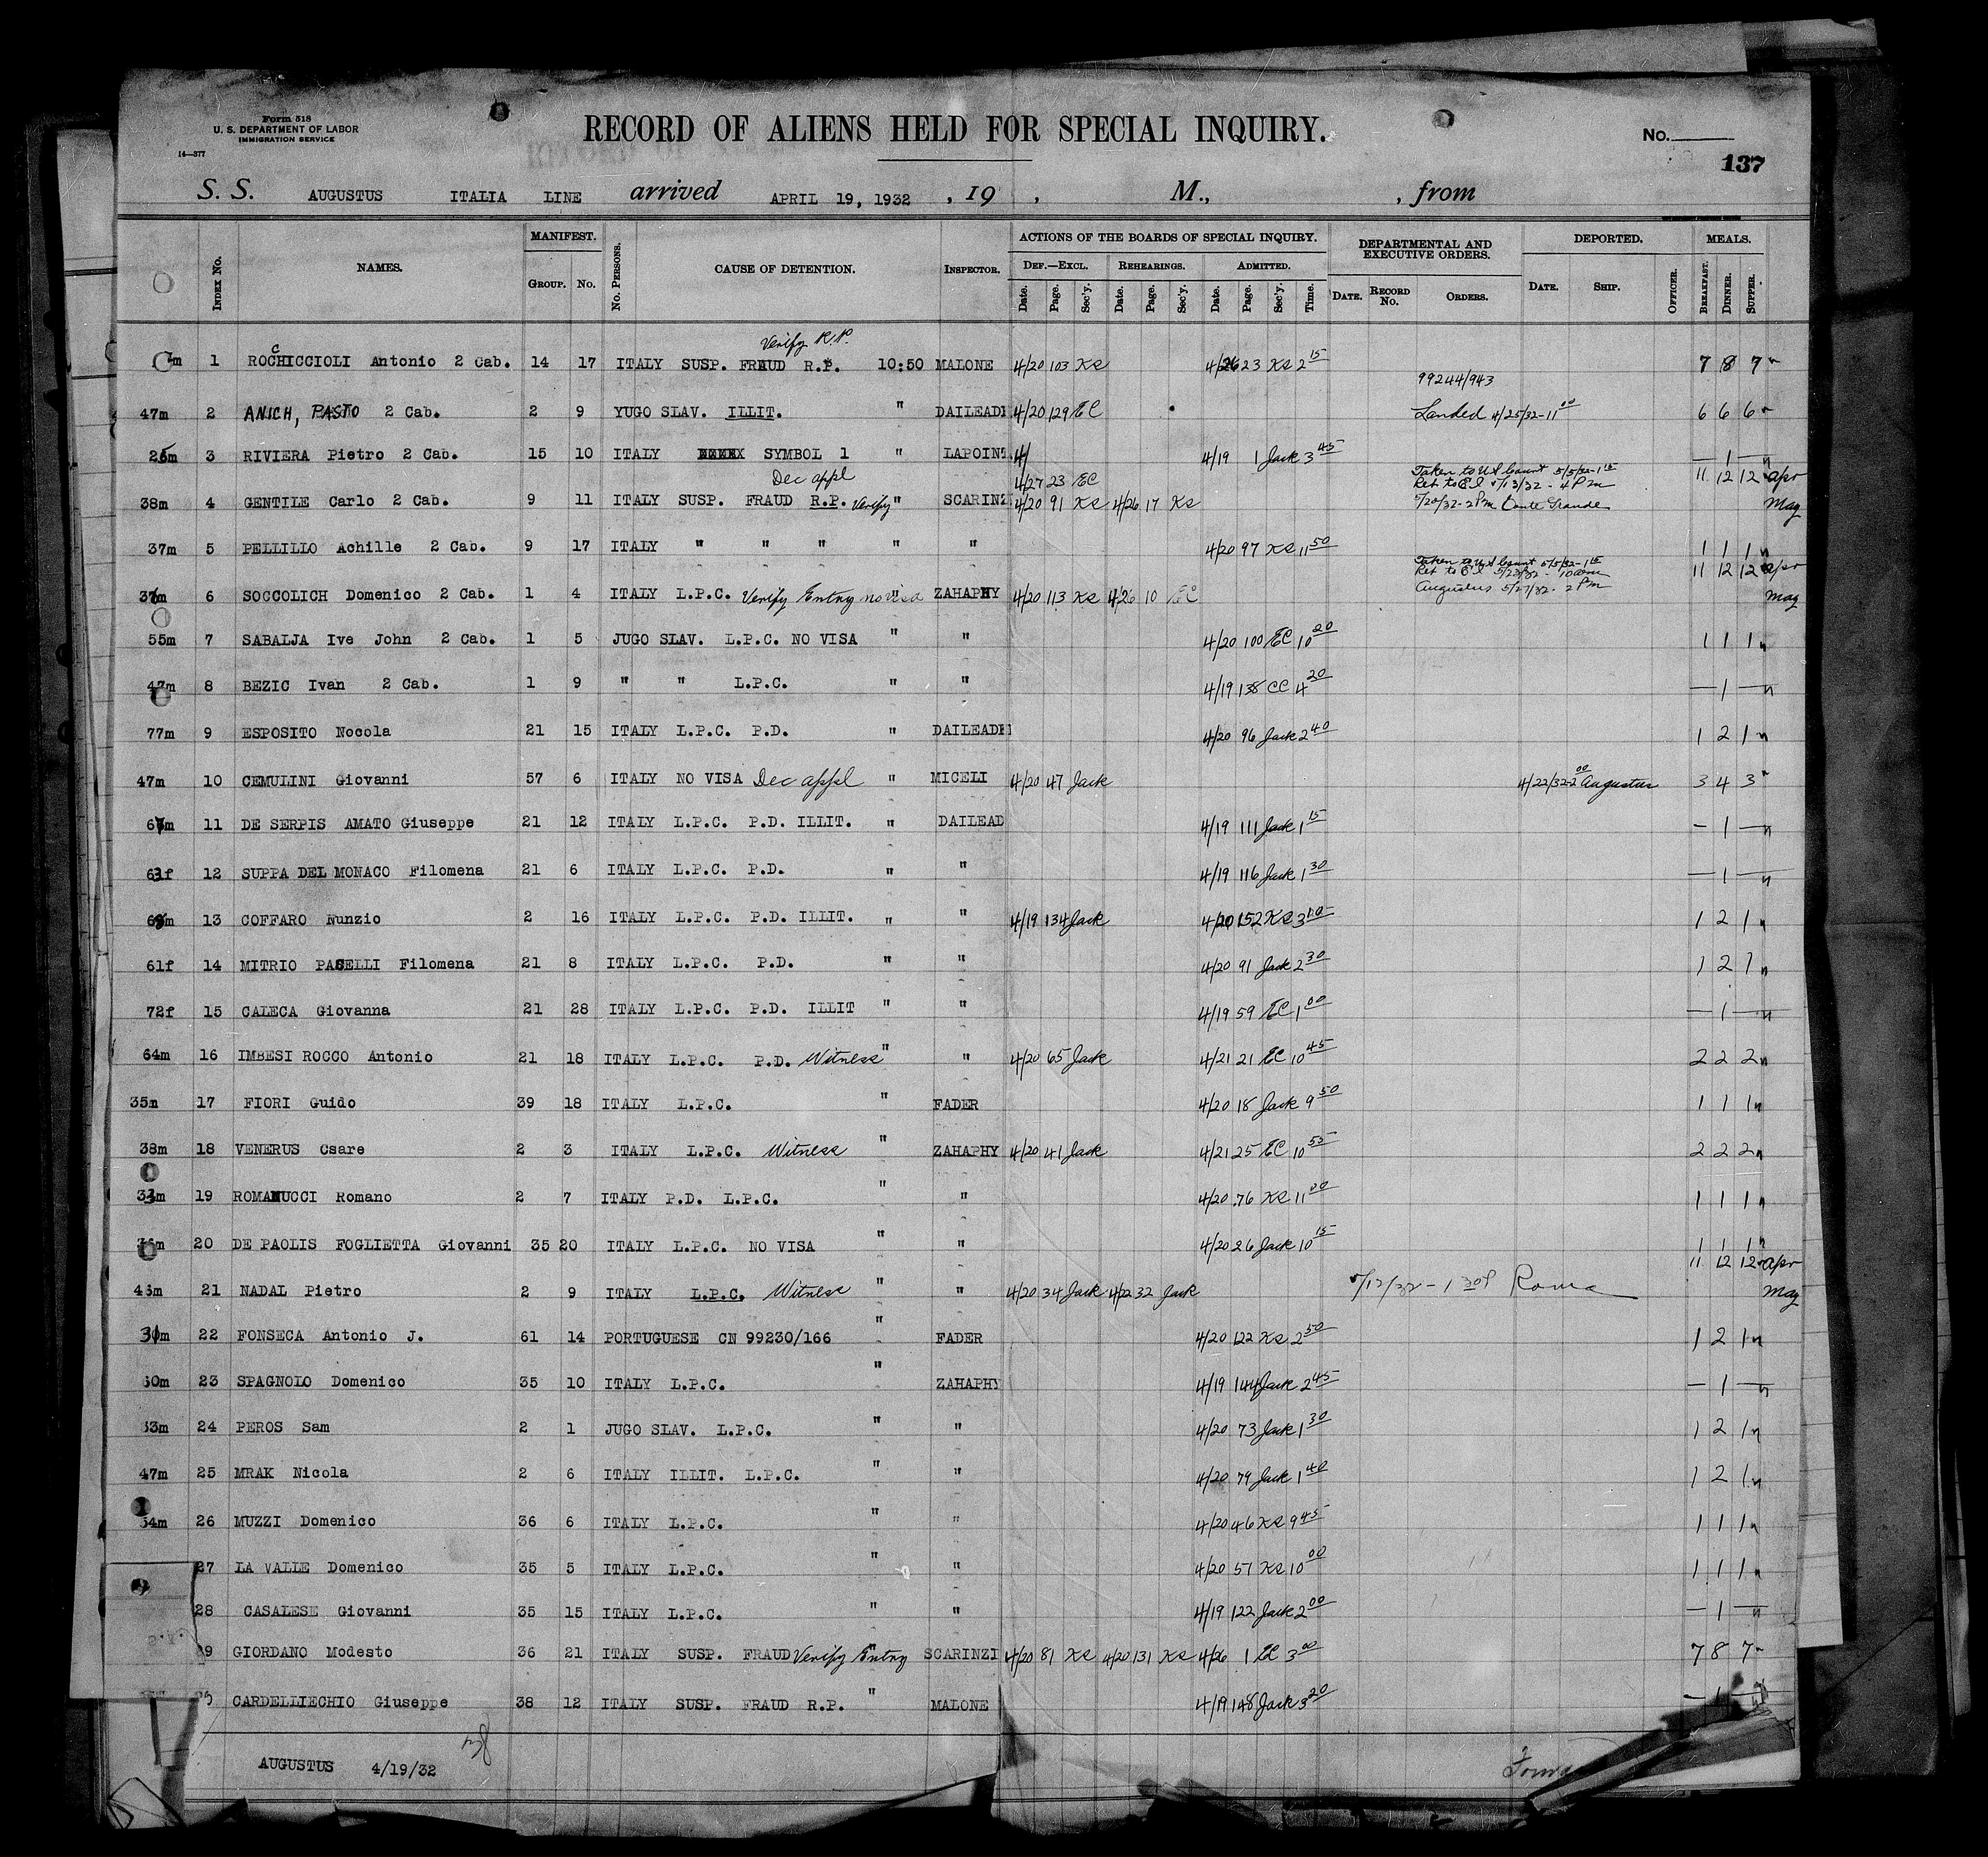 Form 518
U. S. DEPARTMENT OF LABOR
IMMIGRATION SERVICE
14—377
RECORD OF ALIENS HELD FOR SPECIAL INQUIRY.
No.
137
S. S. AUGUSTUS ITALIA LINE arrived APRIL 19, 1932 , 19 , M., , from
INDEX No. NAMES. MANIFEST. GROUP. No. No. PERSONS. CAUSE OF DETENTION. INSPECTOR. ACTIONS OF THE BOARDS OF SPECIAL INQUIRY. DEF.—EXCL. Date. Page. Sec'y. REHEARINGS. Date. Page. Sec'y. ADMITTED. Date. Page. Sec'y. Time. DEPARTMENTAL AND EXECUTIVE ORDERS. DATE. RECORD No. ORDERS. DEPORTED. DATE. SHIP. OFFICER. MEALS. BREAKFAST. DINNER. SUPPER.
Verify R.P.
1 ROCHICCIOLI Antonio 2 Cab. 14 17 ITALY SUSP. FRAUD R.P. 10:50 MALONE 4/20 103 KS 4/26 23 KS 2 15 7 8 7
99244/943
47m 2 ANICH, PASTO 2 Cab. 2 9 YUGO SLAV. ILLIT. " DAILEADE 4/20 129 EC Landed 4/25/32-11 00 6 6 6
3 RIVIERA Pietro 2 Cab. 15 10 ITALY SYMBOL 1 " LAPOINT 4/ 4/19 1 Jack 3 45 — 1 —
Dec appl 4/27 23 EC Taken to US Court 5/5/32-1 15 Ret to EI 5/13/32 - 4 Pm 11 12 12 apr
38m 4 GENTILE Carlo 2 Cab. 9 11 ITALY SUSP. FRAUD R.P. Verify " SCARINZ. 4/20 91 KS 4/26 17 KS 5/20/32-2 Pm Conte Grande May
37m 5 PELLILLO Achille 2 Cab. 9 17 ITALY " " " " " 4/20 97 KS 11 50 1 1 1
Taken to US Court 5/5/32-1 15 Ret to EI 5/23/32 - 10 am 11 12 12 apr
6 SOCCOLICH Domenico 2 Cab. 1 4 ITALY L.P.C. Verify Entry no visa " ZAHAPHY 4/20 113 KS 4/26 10 EC Augustus 5/27/32 - 2 Pm May
55m 7 SABALJA Ive John 2 Cab. 1 5 JUGO SLAV. L.P.C. NO VISA " " 4/20 100 EC 10 20 1 1 1
47m 8 BEZIC Ivan 2 Cab. 1 9 " " L.P.C. " " 4/19 138 CC 4 20 — 1 —
77m 9 ESPOSITO Nocola 21 15 ITALY L.P.C. P.D. " DAILEADE 4/20 96 Jack 2 40 1 2 1
47m 10 CEMULINI Giovanni 57 6 ITALY NO VISA Dec appl " MICELI 4/20 47 Jack 4/22/32-2 00 Augustus 3 4 3
11 DE SERPIS AMATO Giuseppe 21 12 ITALY L.P.C. P.D. ILLIT. " DAILEAD 4/19 111 Jack 1 15 — 1 —
12 SUPPA DEL MONACO Filomena 21 6 ITALY L.P.C. P.D. " " 4/19 116 Jack 1 30 — 1 —
13 COFFARO Nunzio 2 16 ITALY L.P.C. P.D. ILLIT. " " 4/19 134 Jack 4/20 152 KS 3 10 1 2 1
61f 14 MITRIO PACELLI Filomena 21 8 ITALY L.P.C. P.D. " " 4/20 91 Jack 2 30 1 2 1
72f 15 CALECA Giovanna 21 28 ITALY L.P.C. P.D. ILLIT " " 4/19 59 EC 1 00 — 1 —
64m 16 IMBESI ROCCO Antonio 21 18 ITALY L.P.C. P.D. Witness " " 4/20 65 Jack 4/21 21 EC 10 45 2 2 2
35m 17 FIORI Guido 39 18 ITALY L.P.C. " FADER 4/20 18 Jack 9 50 1 1 1
38m 18 VENERUS Csare 2 3 ITALY L.P.C. Witness " ZAHAPHY 4/20 41 Jack 4/21 25 EC 10 55 2 2 2
19 ROMANUCCI Romano 2 7 ITALY P.D. L.P.C. " " 4/20 76 KS 11 00 1 1 1
20 DE PAOLIS FOGLIETTA Giovanni 35 20 ITALY L.P.C. NO VISA " " 4/20 26 Jack 10 15 1 1 1
11 12 12 apr
21 NADAL Pietro 2 9 ITALY L.P.C. Witness " " 4/20 34 Jack 4/22 32 Jack 5/12/32 - 1 30 P Roma May
22 FONSECA Antonio J. 61 14 PORTUGUESE CN 99230/166 " FADER 4/20 122 KS 2 50 1 2 1
23 SPAGNOLO Domenico 35 10 ITALY L.P.C. " ZAHAPHY 4/19 144 Jack 2 45 — 1 —
24 PEROS Sam 2 1 JUGO SLAV. L.P.C. " " 4/20 73 Jack 1 30 1 2 1
47m 25 MRAK Nicola 2 6 ITALY ILLIT. L.P.C. " " 4/20 79 Jack 1 40 1 2 1
26 MUZZI Domenico 36 6 ITALY L.P.C. " " 4/20 46 KS 9 45 1 1 1
27 LA VALLE Domenico 35 5 ITALY L.P.C. " " 4/20 57 KS 10 00 1 1 1
28 CASALESE Giovanni 35 15 ITALY L.P.C. " " 4/19 122 Jack 2 00 — 1 —
29 GIORDANO Modesto 36 21 ITALY SUSP. FRAUD Verify Entry " SCARINZI 4/20 81 KS 4/20 131 KS 4/26 1 EC 3 00 7 8 7
CARDELLIECHIO Giuseppe 38 12 ITALY SUSP. FRAUD R.P. " MALONE 4/19 148 Jack 3 20 — 1 —
AUGUSTUS 4/19/32